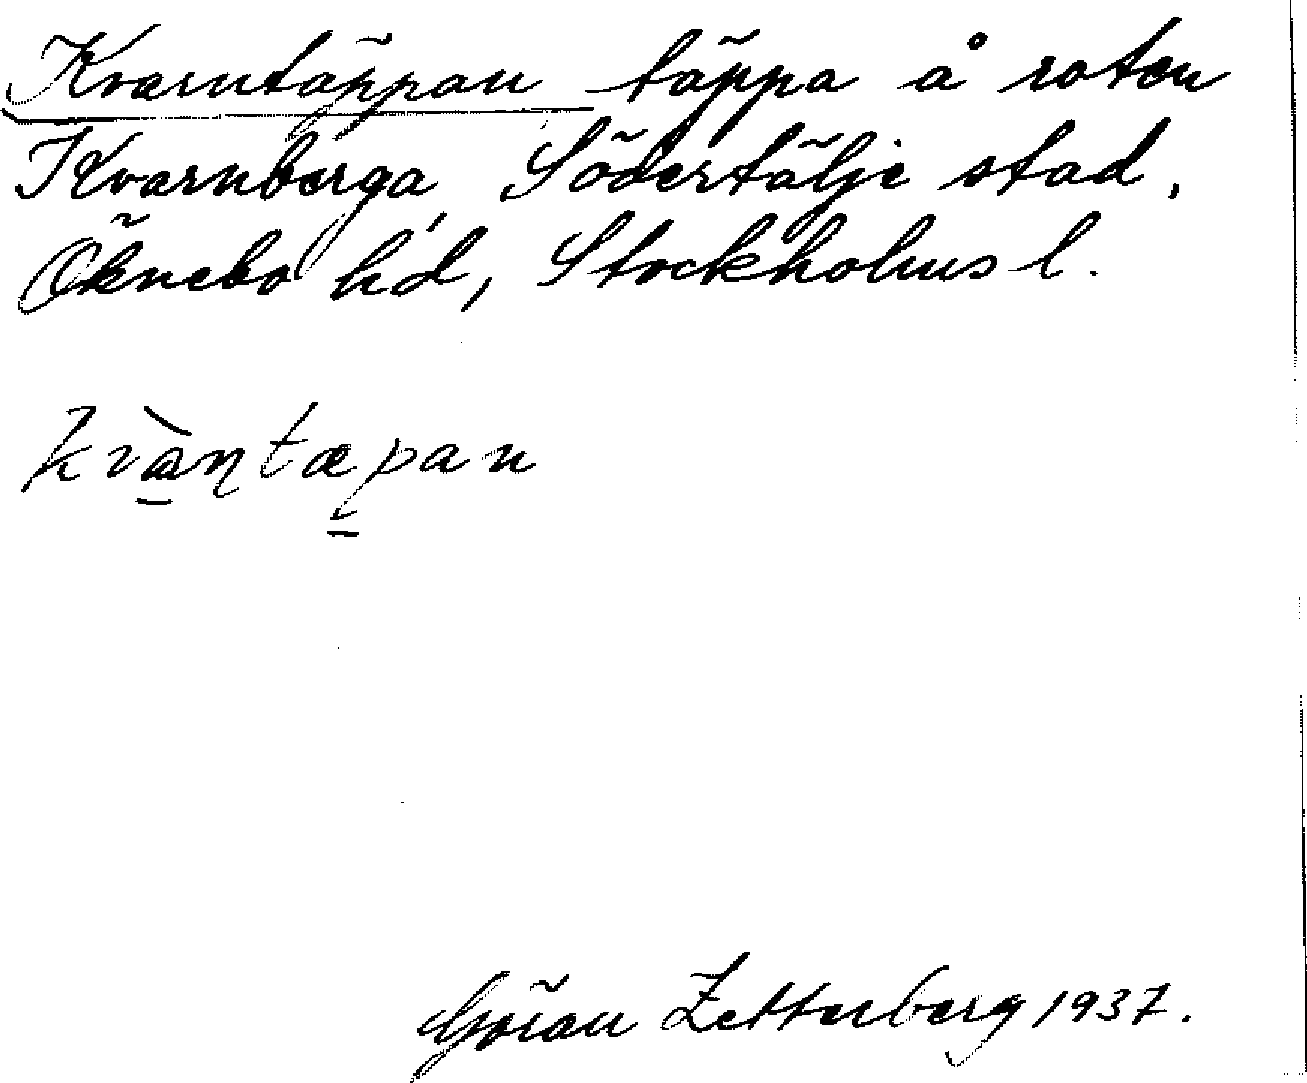 Kvarntäppan täppa å roten
Kvarnberga, Södertälje stad,
Öknebo hd, Stockholms l.
kvàṇtæpan
Göran Zetterberg 1937.